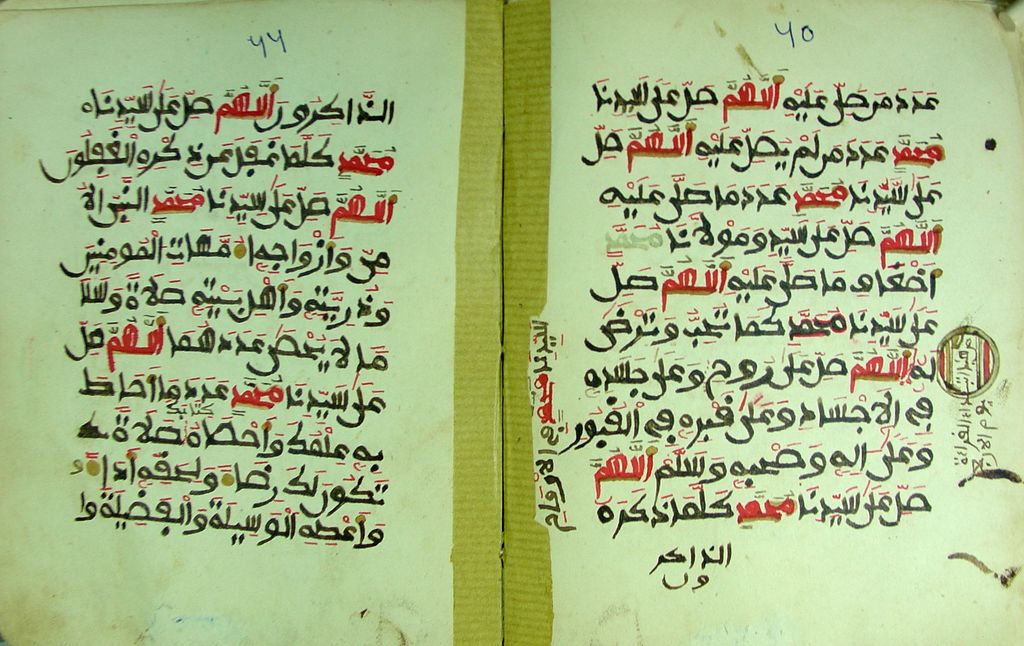 ٦٥
عدد من صل عليه اللهم صل على سيدنا
محمد عدد من لم يصل عليه اللهم صل
على سيدنا محمد عدد ما صلى عليه
اللهم صل على سيد ومولانا محمد
اضعاف ما صلى عليه اللهم صل
على سيدنا محمد كما تحب وترضى
له اللهم صل على روح وعلى جسده
في الاجساد وعلى قبره في القبور
وعلى اله وصحبه وسلم اللهم
صل على سيدنا محمد كلما ذكره
الذاكر
ون
سيدنا محمد في الارواح
٦٦
الذاكرون اللهم صل على سيدنا
محمد كلما غفل عن ذكره الغفلون
اللهم صل على سيدنا محمد النبي الا
مي وازواجه امهات المومنين
وذريته واهل بيته صلاة وسلا
ما لا يحصى عددهما اللهم صل
على سيدنا محمد عدد ما احاط
به علمك واحصاه كتابك صلاة
تكون لك رضا ولحقه اداء
واعطه الوسيلة والفضيلة وا